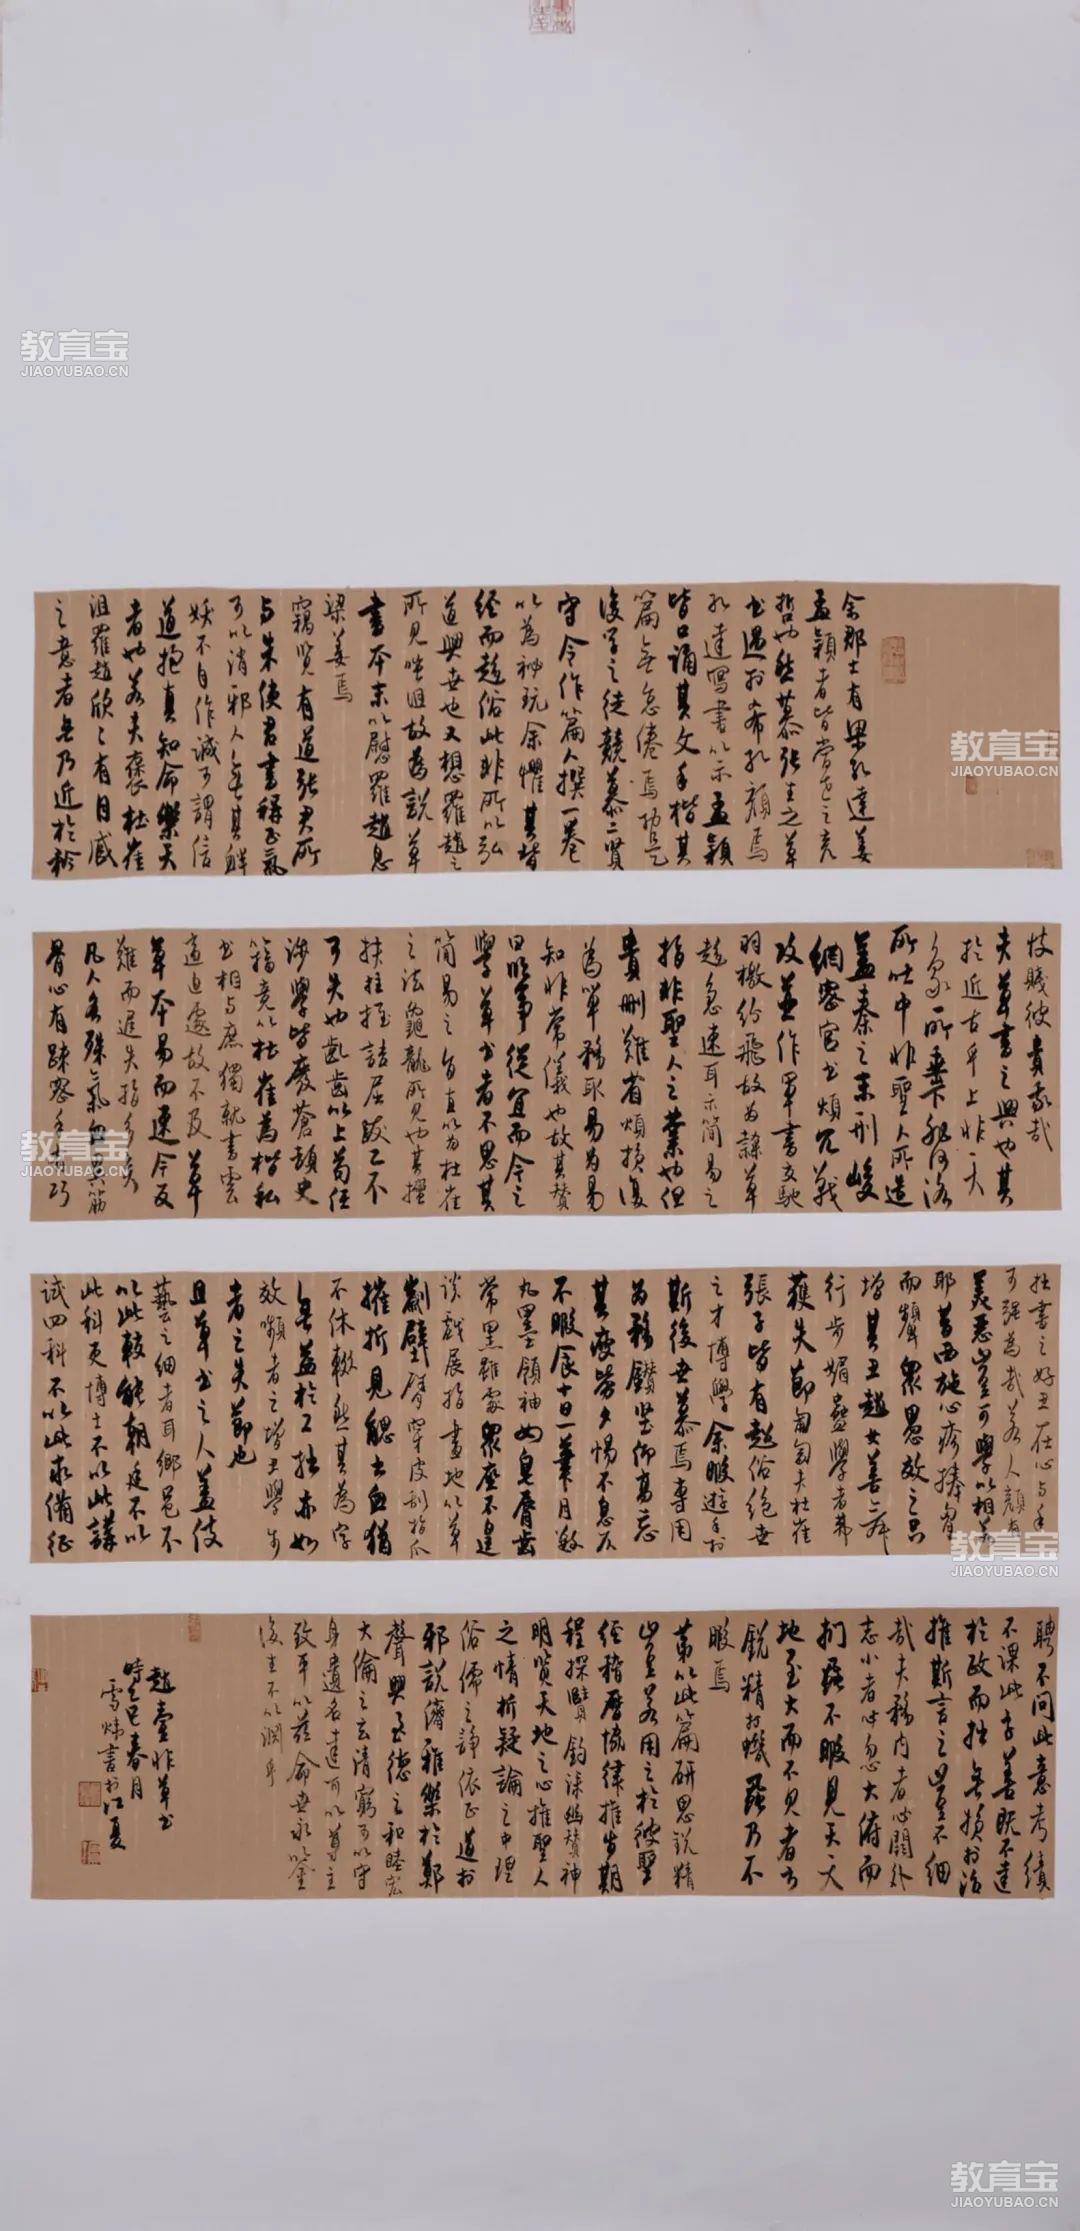 余郡士有梁孔達姜
孟穎者皆當世之彥
哲也然慕張生之草
書過於希孔顏焉
孔達寫書以示孟穎
皆口誦其文手楷其
篇無怠倦焉於是
後學之徒競慕二賢
守令作篇人撰一卷
以為秘玩余懼其背
經而趨俗此非所以弘
道興世也又想羅趙之
所見嗤沮故為說草
書本末以慰羅趙息
梁姜焉
竊覽有道張君所
與朱使君書稱正氣
可以消邪人無其釁
妖不自作誠可謂信
道抱真知命樂天
者也若夫褒杜崔
沮羅趙欣欣有自臧
之意者無乃近於矜
忮賤彼貴我哉
夫草書之興也其
於近古乎上非天
象所垂下非河洛
所吐中非聖人所造
蓋秦之末刑峻
網密官書煩冗戰
攻並作軍書交馳
羽檄紛飛故為隸草
趨急速耳示簡易之
指非聖人之業也但
貴刪難省煩損復
為單務取易為易
知非常儀也故其贊
曰臨事從宜而今之
學草書者不思其
簡易之旨直以為杜崔
之法龜龍所見也其攛
扶柱挃詰屈犮乙不
可失也齔齒以上苟任
涉學皆廢蒼頡史
籀竟以杜崔為楷私
書相與庶獨就書雲
適迫遽故不及草
草本易而速今反
難而遲失指多矣
凡人各殊氣血異筋
骨心有疏密手有巧
拙書之好丑在心與手
可強為哉若人顏有
美惡豈可學以相若
耶昔西施心疹捧胸
而顰眾愚效之只
增其丑趙女善舞
行步媚蠱學者弗
獲失節匍匐夫杜崔
張子皆有超俗絕世
之才博學餘暇遊手於
斯後世慕焉專用
為務鑽堅仰高忘
其疲勞夕惕不息仄
不暇食十日一筆月數
丸墨領袖如皂唇齒
常黑雖處眾座不遑
談戲展指畫地以草
劌壁臂穿皮刮指爪
摧折見腮出血猶
不休輟然其為字
無益於工拙亦如
效顰者之增丑學步
者之失節也
且草書之人蓋伎
藝之細者耳鄉邑不
以此較能朝廷不以
此科吏博士不以此講
試四科不以此求備征
聘不問此意考績
不課此字善既不達
於政而拙無損於治
推斯言之豈不細
哉夫務內者必闕外
志小者必忽大俯而
捫蝨不暇見天天
地至大而不見者方
銳精於蟣蝨乃不
暇焉
第以此篇研思銳精
豈若用之於彼聖
經稽歷協律推步期
程探賾鉤深幽贊神
明覽天地之心推聖人
之情析疑論之中理
俗儒之諍依正道於
邪說儕雅樂於鄭
聲興至德之和睦宏
大倫之玄清窮可以守
身遺名達可以尊主
致平以茲命世永以鑒
後生不以淵乎
趙壹非草書
時乙巳春月
雪煒書於江夏
教育宝
JIAOYUBAO.CN
教育宝
JIAOYUBAO.CN
教育宝
JIAOYUBAO.CN
教育宝
JIAOYUBAO.CN
教育宝
JIAOYUBAO.CN